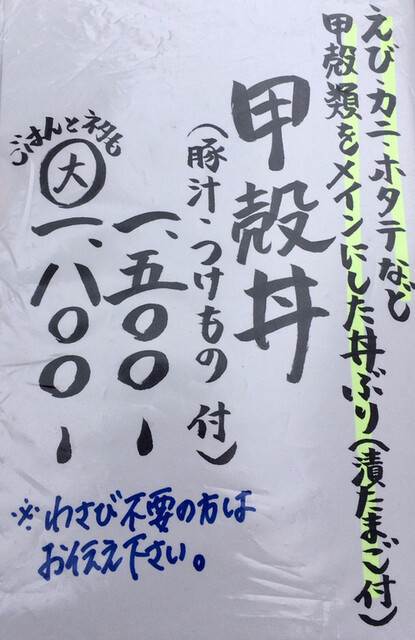 えび・カニ・ホタテなど
甲殻類をメインにした丼ぶり(漬たまご付)
甲殻丼
(豚汁・つけもの付)
一、五〇〇-
ごはんとネタも
大
一、八〇〇-
※わさび不要の方は
お伝え下さい。